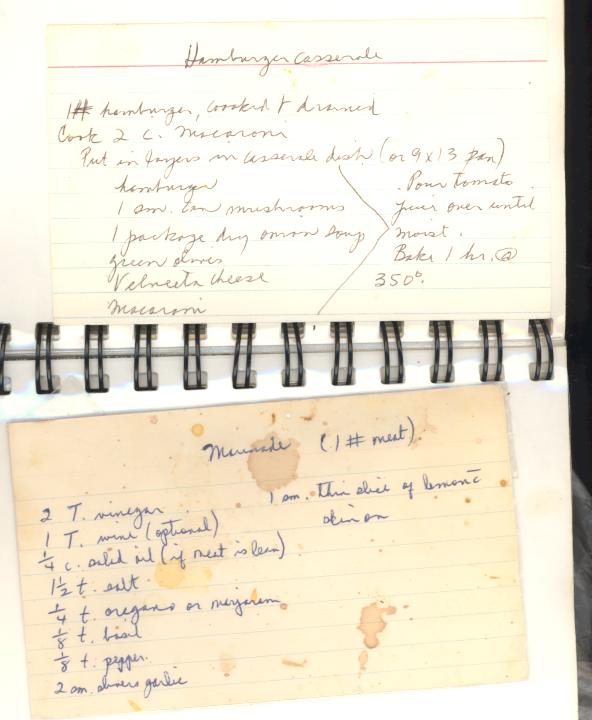 Hamburger Casserole
1# hamburger, cooked & drained
Cook 2 c. Macaroni
Put in layers in casserole dish (or 9 x 13 pan)
hamburger
1 sm. can mushrooms
1 package dry onion soup
green olives
Velveeta cheese
Macaroni
Pour tomato
juice over until
moist.
Bake 1 hr. @
350°.
Marinade (1 # meat)
2 T. vinegar
1 T. wine (optional)
1/4 c. salad oil (if meat is lean)
1 1/2 t. salt
1/4 t. oregano or marjoram
1/8 t. basil
1/8 t. pepper.
2 sm. slivers garlic
1 sm. thin slice of lemon c̄
skin on